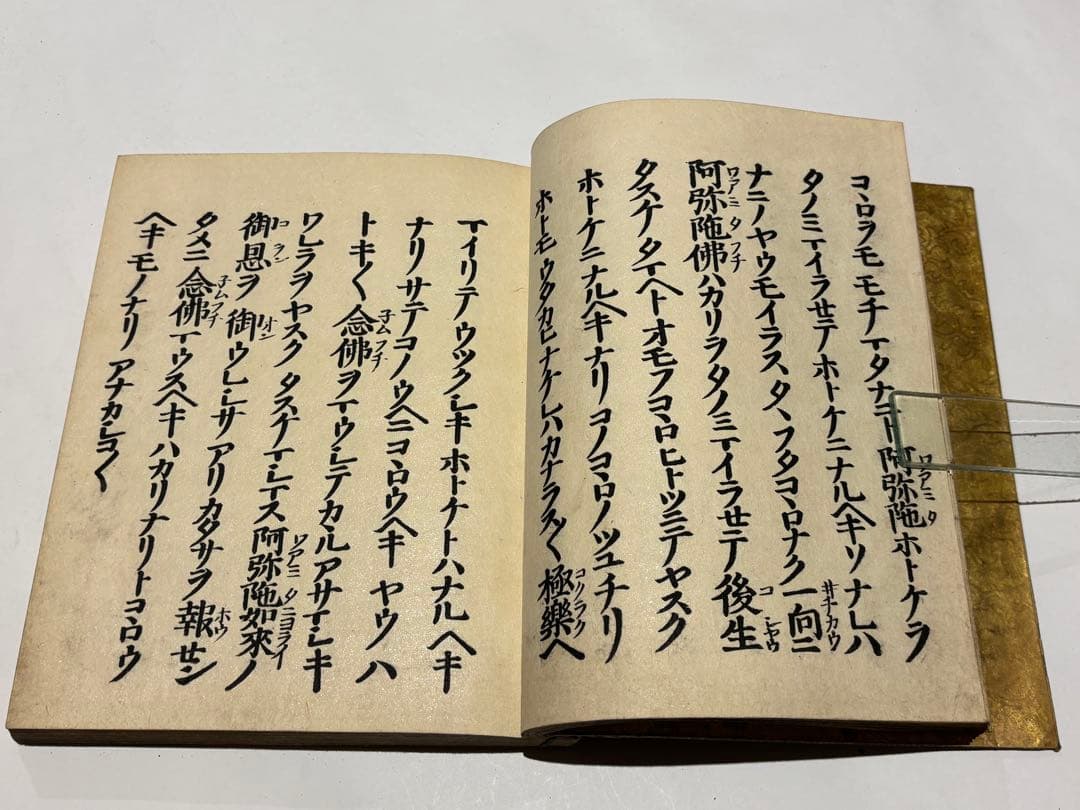 コヽロヲモモチマタナニト阿弥陁ホトケヲ
ワアミタ
タノミマイラセテホトケニナルヘキソナレハ
ナニノヤウモイラスタヽフタコヽロナク一向ニ
井チカウ
阿弥陁佛ハカリヲタノミマイラセテ後生
ワアミタフチ
コシヤウ
タスケタマヘトオモフコヽロヒトツニテヤスク
ホトケニナルヘキナリコノコヽロノツユチリ
ホトモウタカヒナケレハカナラス〱極樂ヘ
コクラク
マイリテウツクシキホトケトハナルヘキ
ナリサテコノウヘニコヽロウヘキヤウハ
トキ〱念佛ヲマウシテカルアサマシキ
子ムフチ
ワレラヲヤスクタスケマシマス阿弥陁如來ノ
ワアミタニヨライ
御恩ヲ御ウレシサアリカタサヲ報セン
コヲン
オン
ホウ
タメニ念佛マウスヘキハカリナリトコヽロウ
子ムフチ
ヘキモノナリアナカシコ〱